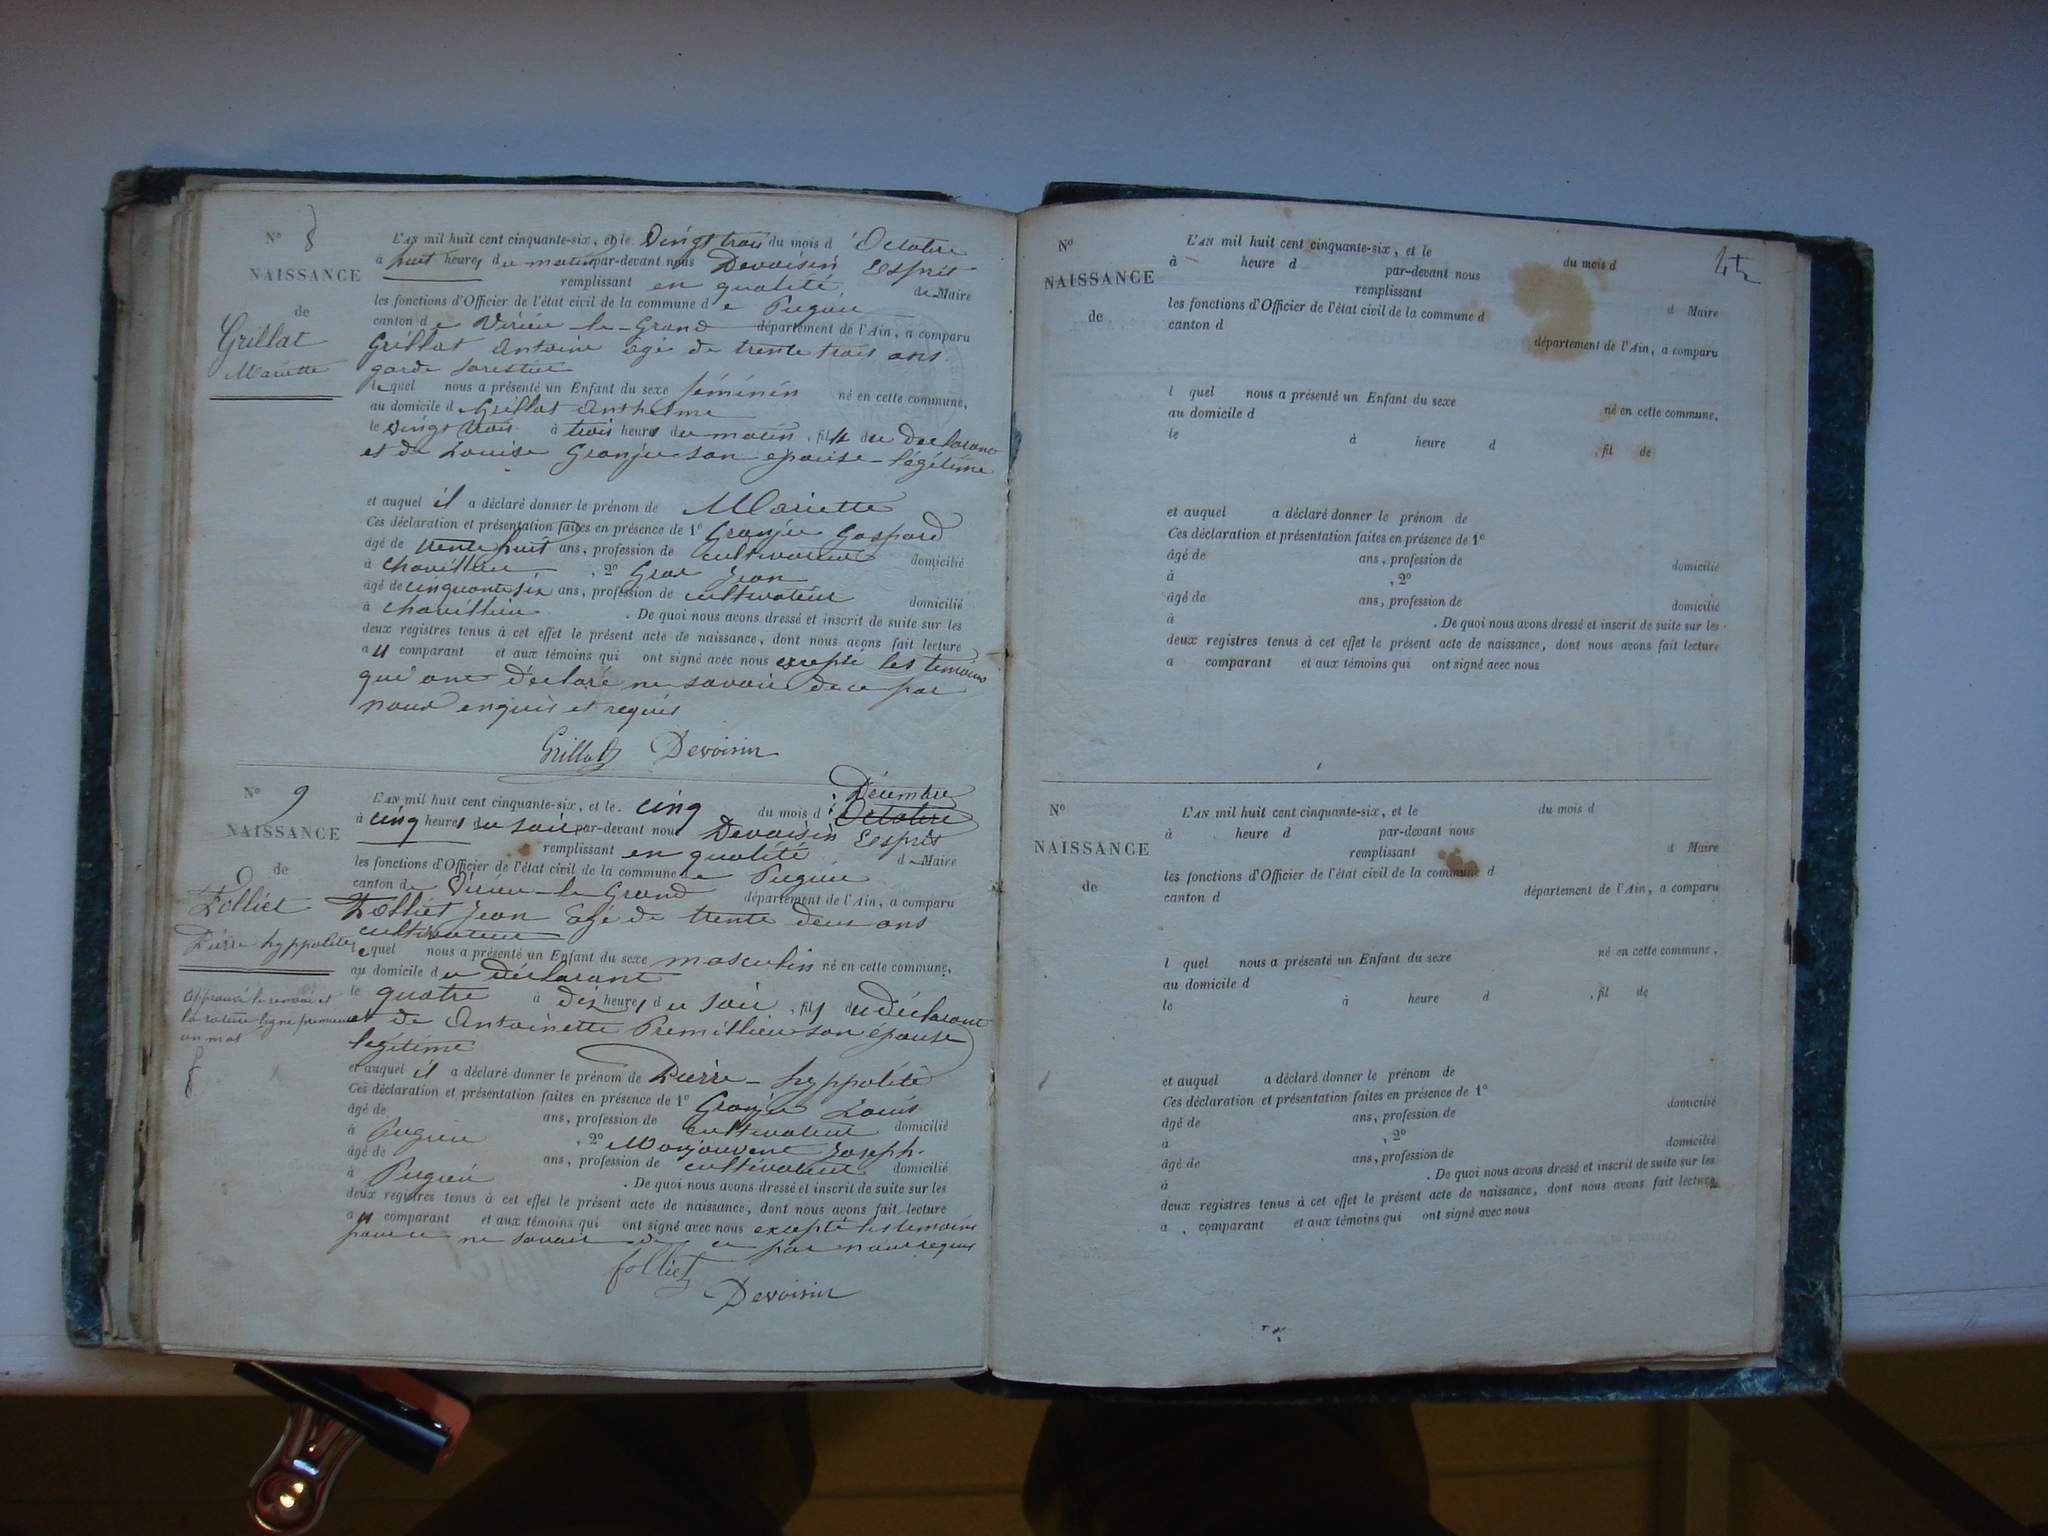 N° 8
NAISSANCE
de
Grillat
Mariette
L'AN mil huit cent cinquante-six, et le Vingt trois du mois d'Octobre
à huit heures du matin par-devant nous Devoisin Esprit
remplissant en qualité de Maire
les fonctions d'Officier de l'état civil de la commune de Pugieu
canton de Virieu-le-Grand département de l'Ain, a comparu
Grillat Antoine âgé de trente trois ans
garde forestier
lequel nous a présenté un Enfant du sexe féminin né en cette commune,
au domicile d Grillat Anthelme
le vingt trois à trois heures du matin, fille du déclarant
et de Louise Granju son épouse légitime
et auquel il a déclaré donner le prénom de Mariette
Ces déclaration et présentation faites en présence de 1° Granju Gaspard
âgé de trente huit ans, profession de cultivateur domicilié
à Chavillieu, 2° Jean
âgé de cinquante six ans, profession de cultivateur domicilié
à Chavillieu. De quoi nous avons dressé et inscrit de suite sur les
deux registres tenus à cet effet le présent acte de naissance, dont nous avons fait lecture
au comparant et aux témoins qui ont signé avec nous excepté les témoins
qui ont déclaré ne savoir de ce par
nous enquis et requis
Grillat Devoisin
N° 9
NAISSANCE
de
Folliet
Pierre hyppolite
Approuvé le renvoi et
la rature ligne première
un mot
Décembre
L'AN mil huit cent cinquante-six, et le cinq du mois d Octobre
à cinq heures du soir par-devant nous Devoisin Esprit
remplissant en qualité de Maire
les fonctions d'Officier de l'état civil de la commune de Pugieu
canton de Virieu-le-Grand département de l'Ain, a comparu
Folliet Jean âgé de trente deux ans
cultivateur
lequel nous a présenté un Enfant du sexe masculin né en cette commune,
au domicile du déclarant
le quatre à dix heures du soir, fils du déclarant
et de Antoinette Premillieu son épouse
légitime
et auquel il a déclaré donner le prénom de Pierre-hyppolite
Ces déclaration et présentation faites en présence de 1° Granju Louis
âgé de ans, profession de cultivateur domicilié
à Pugieu, 2° Monjouvent Joseph
âgé de ans, profession de cultivateur domicilié
à Pugieu. De quoi nous avons dressé et inscrit de suite sur les
deux registres tenus à cet effet le présent acte de naissance, dont nous avons fait lecture
au comparant et aux témoins qui ont signé avec nous excepté les témoins
pour ne savoir de ce par nous requis
folliet
Devoisin
N°
NAISSANCE
de
L'AN mil huit cent cinquante-six, et le du mois d
à heure d par-devant nous
remplissant d Maire
les fonctions d'Officier de l'état civil de la commune d
canton d département de l'Ain, a comparu
l quel nous a présenté un Enfant du sexe né en cette commune,
au domicile d
le à heure d , fil de
et auquel a déclaré donner le prénom de
Ces déclaration et présentation faites en présence de 1°
âgé de ans, profession de domicilié
à , 2°
âgé de ans, profession de domicilié
à . De quoi nous avons dressé et inscrit de suite sur les
deux registres tenus à cet effet le présent acte de naissance, dont nous avons fait lecture
a comparant et aux témoins qui ont signé avec nous
N°
NAISSANCE
de
L'AN mil huit cent cinquante-six, et le du mois d
à heure d par-devant nous
remplissant d Maire
les fonctions d'Officier de l'état civil de la commune d
canton d département de l'Ain, a comparu
l quel nous a présenté un Enfant du sexe né en cette commune,
au domicile d
le à heure d , fil de
et auquel a déclaré donner le prénom de
Ces déclaration et présentation faites en présence de 1°
âgé de ans, profession de domicilié
à , 2°
âgé de ans, profession de domicilié
à . De quoi nous avons dressé et inscrit de suite sur les
deux registres tenus à cet effet le présent acte de naissance, dont nous avons fait lecture
a comparant et aux témoins qui ont signé avec nous